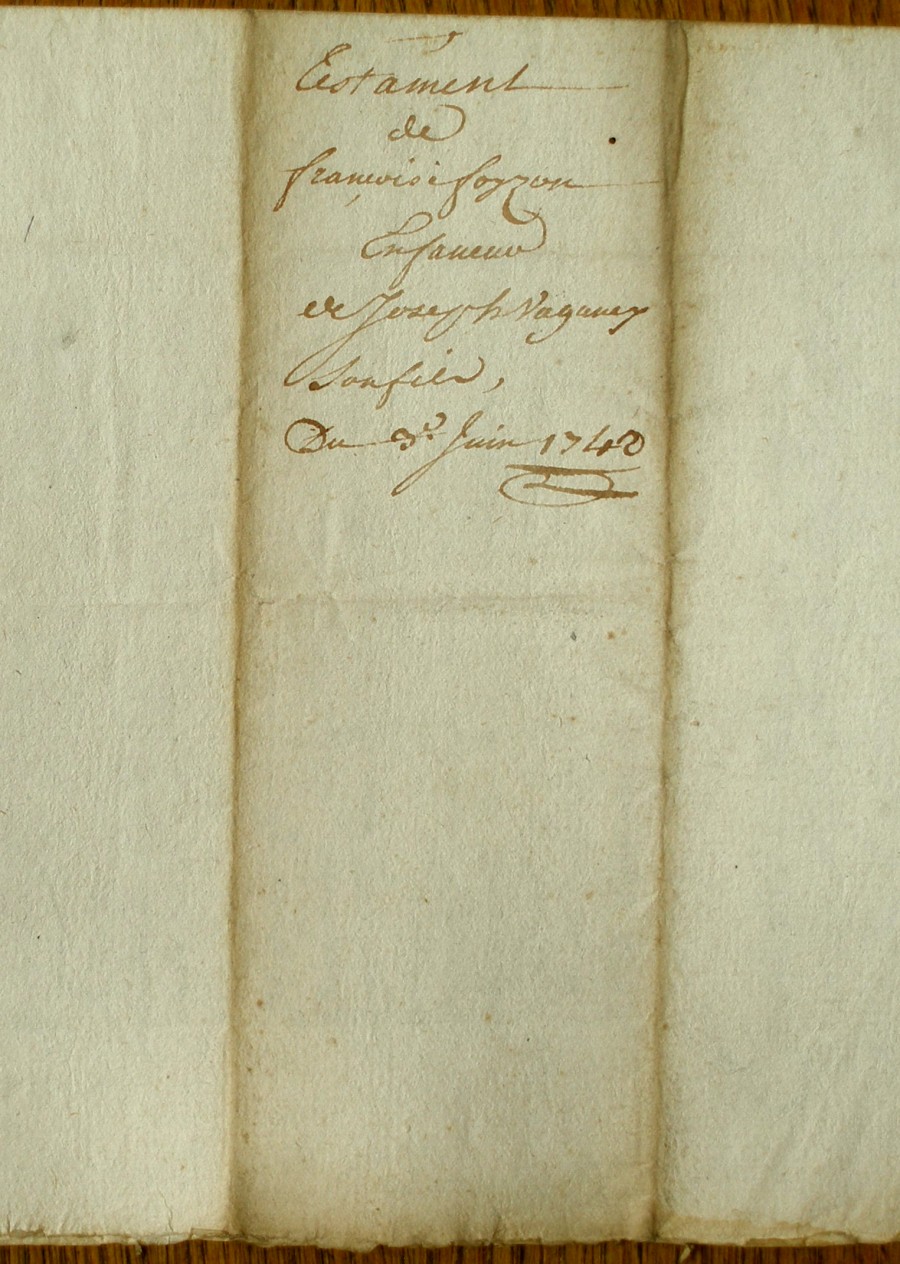 Testament
de
françoise foyzon
En faueur
de Joseph Vaganey
Son fils,
Du 3e. Juin 1740